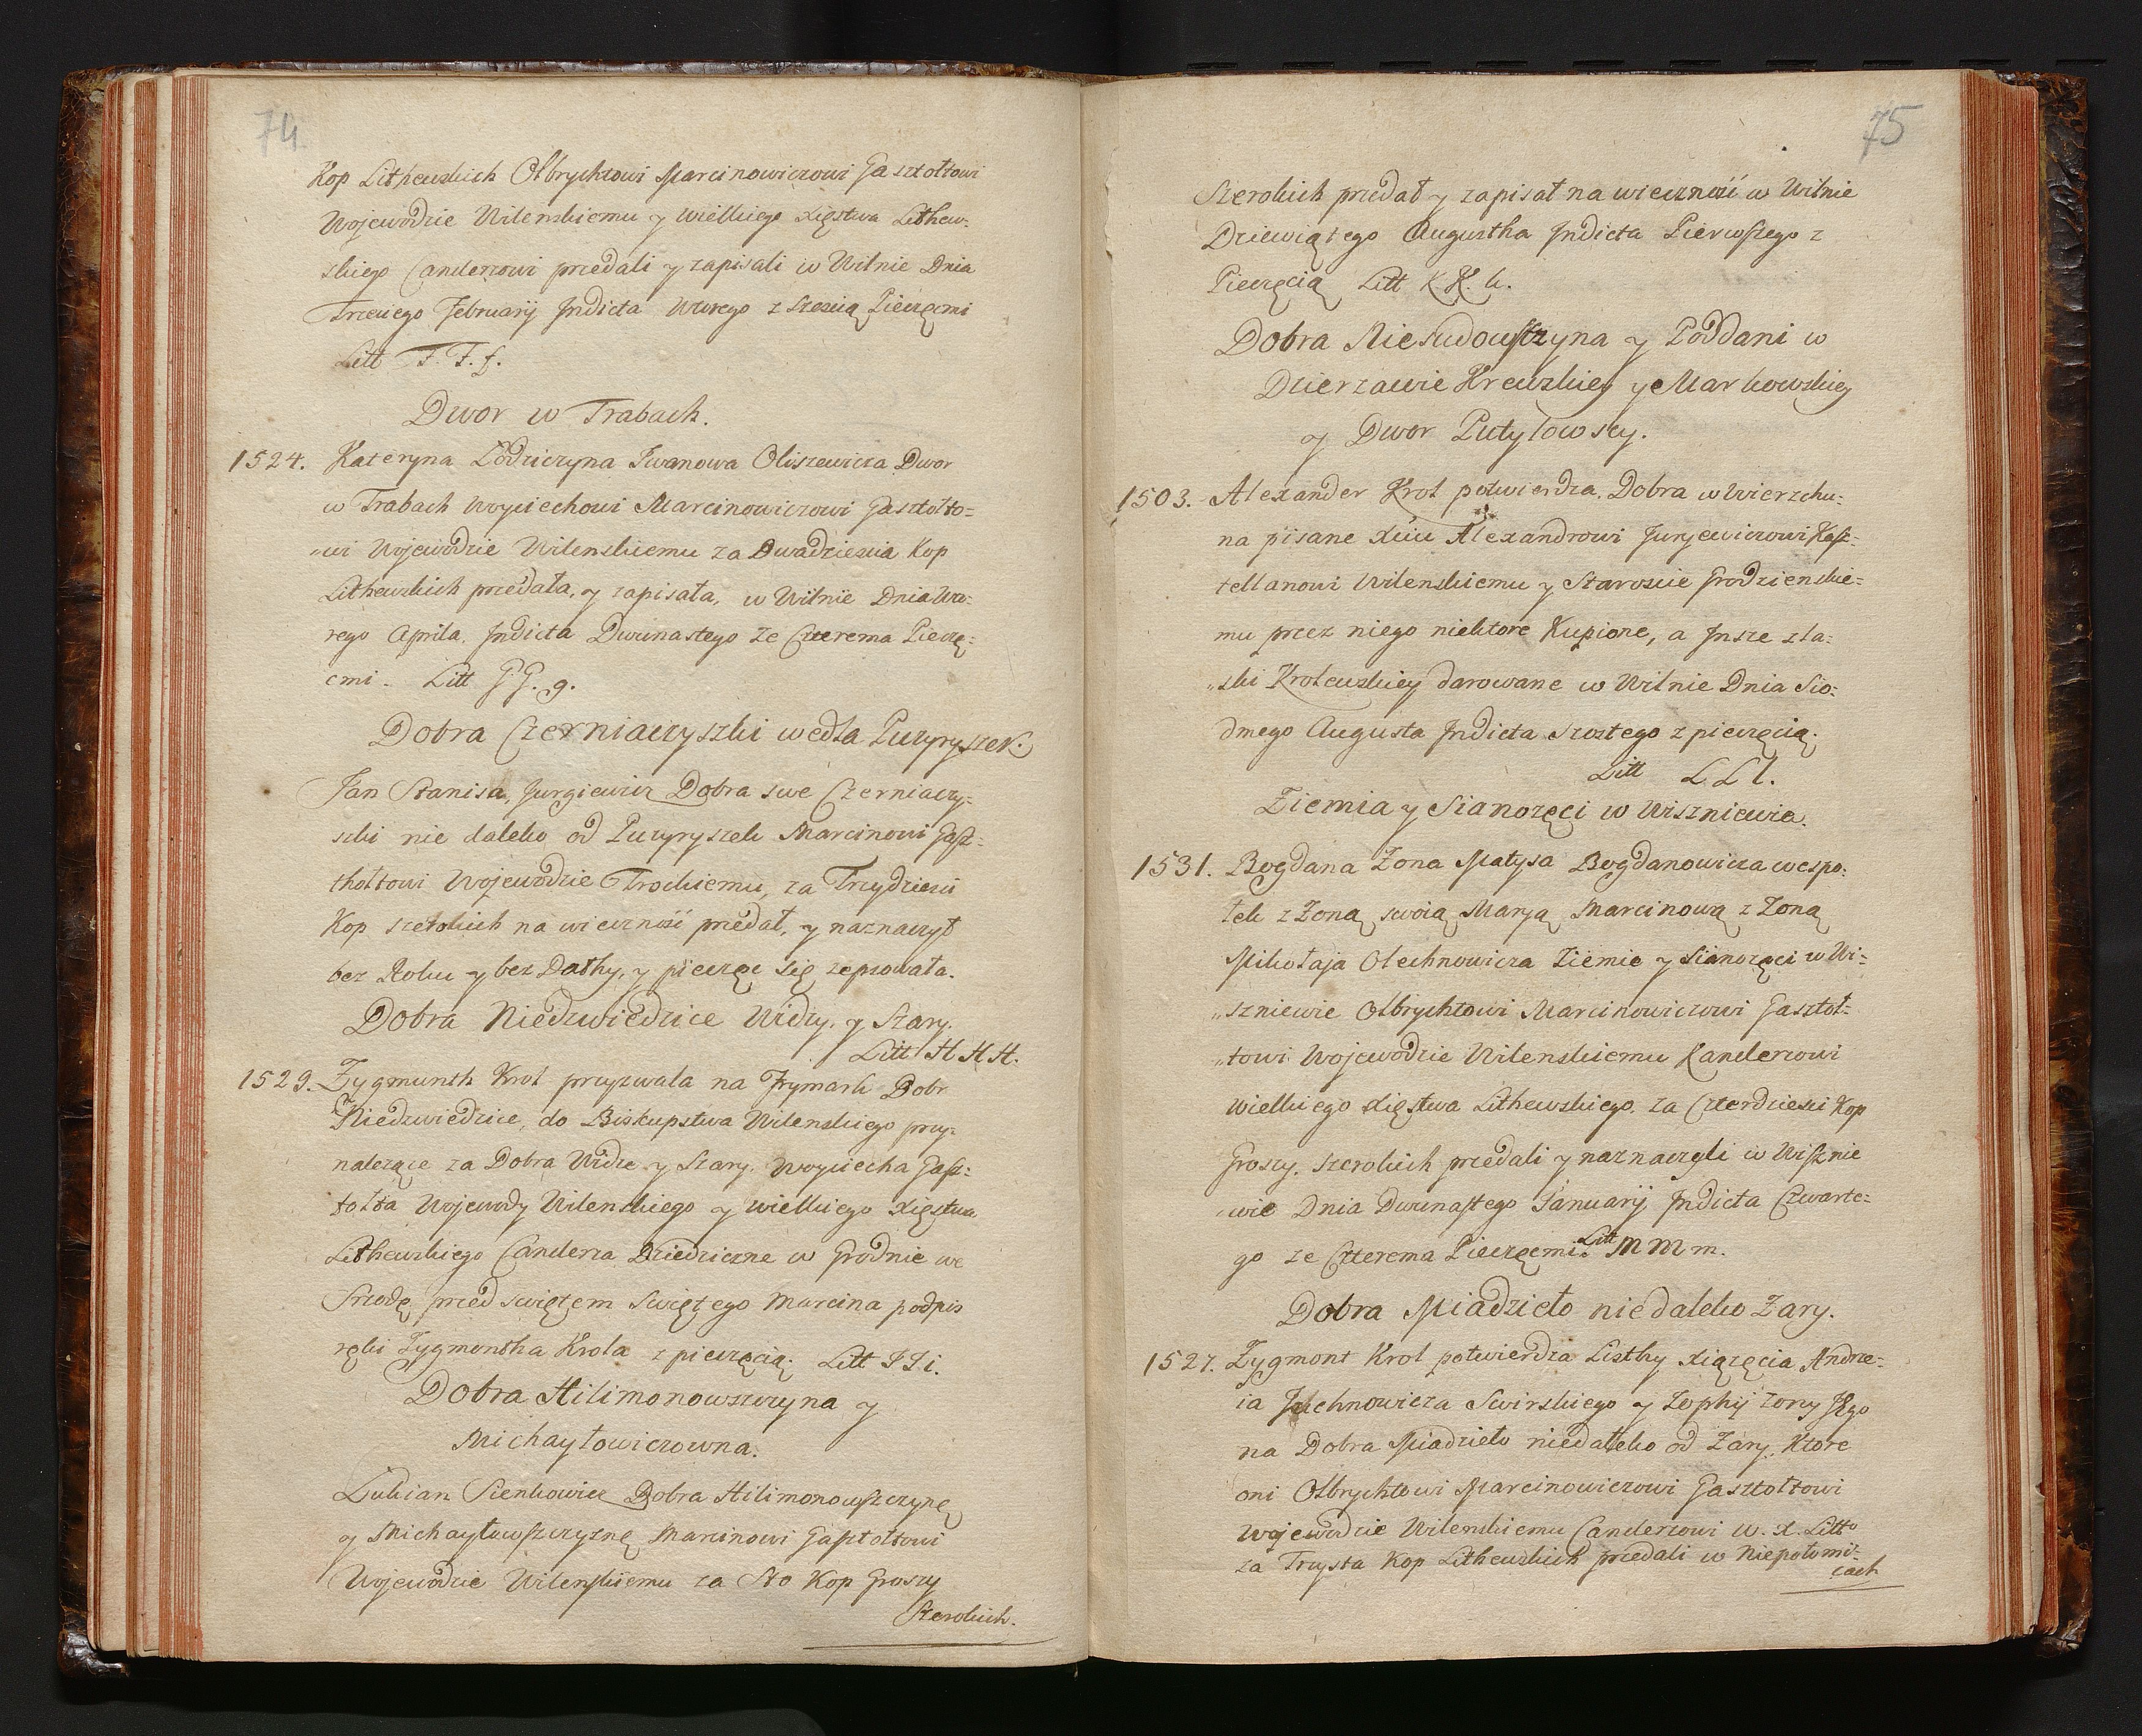 74
Kop Lithewskich Olbrychtowi Marcinowiczowi Gasztołtowi
Wojewodzie Wilenskiemu y Wielkiego Xięstwa Lithew-
skiego Canclerzowi przedali y zapisali w Wilnie Dnia
Trzeciego Februarij Jndicta Wtorego z Szescią Pieczęcmi
Litt F. F. f.
Dwor w Trabach.
1524. Kateryna Jwanowa Oliszewicza Dwor
w Trabach Woyciechowi Marcinowiczowi Gasztołto=
„wi Wojewodzie Wilenskiemu za Dwadziescia Kop
Lithewskich przedała, y zapisała, w Wilnie Dnia Wto:
rego Aprila. Jndicta Dwunastego ze Czterema Pieczę:
cmi. Litt G G. g.
Dobra Czerniaczyszki wedla Puzyryszek.
Jan Stanisa, Jurgiewicz Dobra swe Czerniaczy:
szki nie daleko od Puzyryszek Marcinowi Gasz:
thołtowi Wojewodzie Trockiemu, za Trzydziesci
Kop szerokich na wiecznosć przedał, y naznaczył
bez Roku y bez Dathy, y pieczęc się zepsowała.
Dobra Niedzwiedzice Widzy. y Szary.
Litt H H H.
1529. Zygmunth Krol przyzwala na Frymark Dobr
Niedzwiedzice, do Biskupstwa Wilenskiego przy:
nalezące za Dobra Widze y Szary. Woyciecha Gasz:
tołta Wojewody Wilenskiego y wielkiego Xięstwa
Lithewskiego Canclerza Dziedziczne w Grodnie we
Srzodę przed swiętem Swiętego Marcina podpis
ręki Zygmontha Krola z pieczęcią. Litt I I i.
Dobra Hilimonowszczyna y
Michayłowiczowna.
Lukian Sienkowicz Dobra Hilimonowszczynę
y Michayłowszczyznę Marcinowi Gasztołtowi
Wojewodzie Wilenskiemu za Sto Kop Groszy
Szerokich.
75
Szerokich przedał y zapisał na wiecznosć w Wilnie
Dziewiątego Augustha Jndicta Pierwszego z
Pieczęcią Litt K K. k.
Dobra Niesudowszczyna y Poddani w
Dzierzawie Krewskiey y Markowskiey
y Dwor Putyłowscy.
1503. Alexander Krol potwierdza. Dobra w Wierzchu:
na pisane Xciu Alexandrowi Jurjewiczowi Kasz:
tellanowi Wilenskiemu y Staroscie Grodzienskie=
mu przez niego niektore Kupione, a Jnsze zła:
„ski Krolewskiey darowane w Wilnie Dnia Sio:
dmego Augusta Jndicta Szostego z pieczęcią.
Litt L L l.
Ziemia y Sianozęci w Wiszniewie.
1531. Bogdana Zona Matysa Bogdanowicza wespo:
łek z Zoną swoią Marją Marcinową z Zoną
Mikołaja Olechnowicza Ziemie y Sianozęci w Wi=
„szniewie Olbrychtowi Marcinowiczowi Gasztoł:
„towi Wojewodzie Wilenskiemu Kanclerzowi
Wielkiego Xięstwa Lithewskiego. za Czterdziesci Kop
Groszy. szerokich przedali y naznaczyli w Wisznie
„wie Dnia Dwunastego Januarij Jndicta Czwarte:
go ze Czterema Pieczęcmi. Litt M M m.
Dobra Miadzioło niedaleko Zary.
1527. Zygmont Krol potwierdza Listhy Xiązęcia Andrze:
ia Juchnowicza Swirskiego y Zophij zony Jego
na Dobra Miadzioło niedaleko od Zary. Ktore
oni Olbrychtowi Marcinowiczowi Gasztołtowi
Wojewodzie Wilenskiemu Canclerzowi W. X. Litto
za Trzysta Kop Lithewskich przedali w Niepołomi:
cach